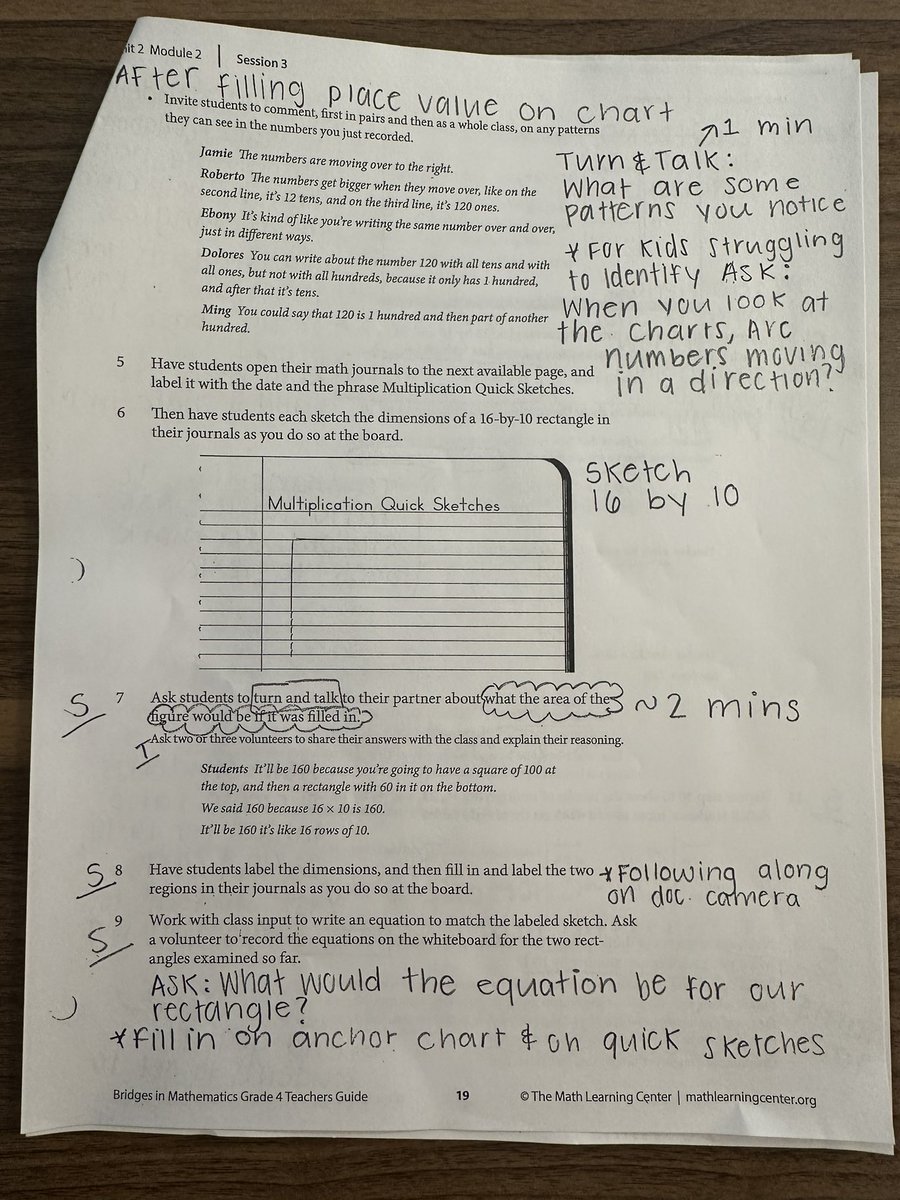 it 2 Module 2 | Session 3
After filling place value on chart
• Invite students to comment, first in pairs and then as a whole class, on any patterns
they can see in the numbers you just recorded.
↗1 min
Jamie The numbers are moving over to the right.
Roberto The numbers get bigger when they move over, like on the
second line, it's 12 tens, and on the third line, it's 120 ones.
Ebony It's kind of like you're writing the same number over and over,
just in different ways.
Dolores You can write about the number 120 with all tens and with
all ones, but not with all hundreds, because it only has 1 hundred,
and after that it's tens.
Ming You could say that 120 is 1 hundred and then part of another
hundred.
Turn & Talk:
What are some
patterns you notice
* For kids struggling
to identify ASK:
When you look at
the charts, Are
numbers moving
in a direction?
5 Have students open their math journals to the next available page, and
label it with the date and the phrase Multiplication Quick Sketches.
6 Then have students each sketch the dimensions of a 16-by-10 rectangle in
their journals as you do so at the board.
Multiplication Quick Sketches
Sketch
16 by 10
S 7 Ask students to turn and talk to their partner about what the area of the
figure would be if it was filled in.
~2 mins
T Ask two or three volunteers to share their answers with the class and explain their reasoning.
Students It'll be 160 because you're going to have a square of 100 at
the top, and then a rectangle with 60 in it on the bottom.
We said 160 because 16 × 10 is 160.
It'll be 160 it's like 16 rows of 10.
S 8 Have students label the dimensions, and then fill in and label the two
regions in their journals as you do so at the board.
* Following along
on doc. camera
S 9 Work with class input to write an equation to match the labeled sketch. Ask
a volunteer to record the equations on the whiteboard for the two rect-
angles examined so far.
ASK: What would the equation be for our
rectangle?
* fill in on anchor chart & on quick sketches
Bridges in Mathematics Grade 4 Teachers Guide 19 © The Math Learning Center | mathlearningcenter.org